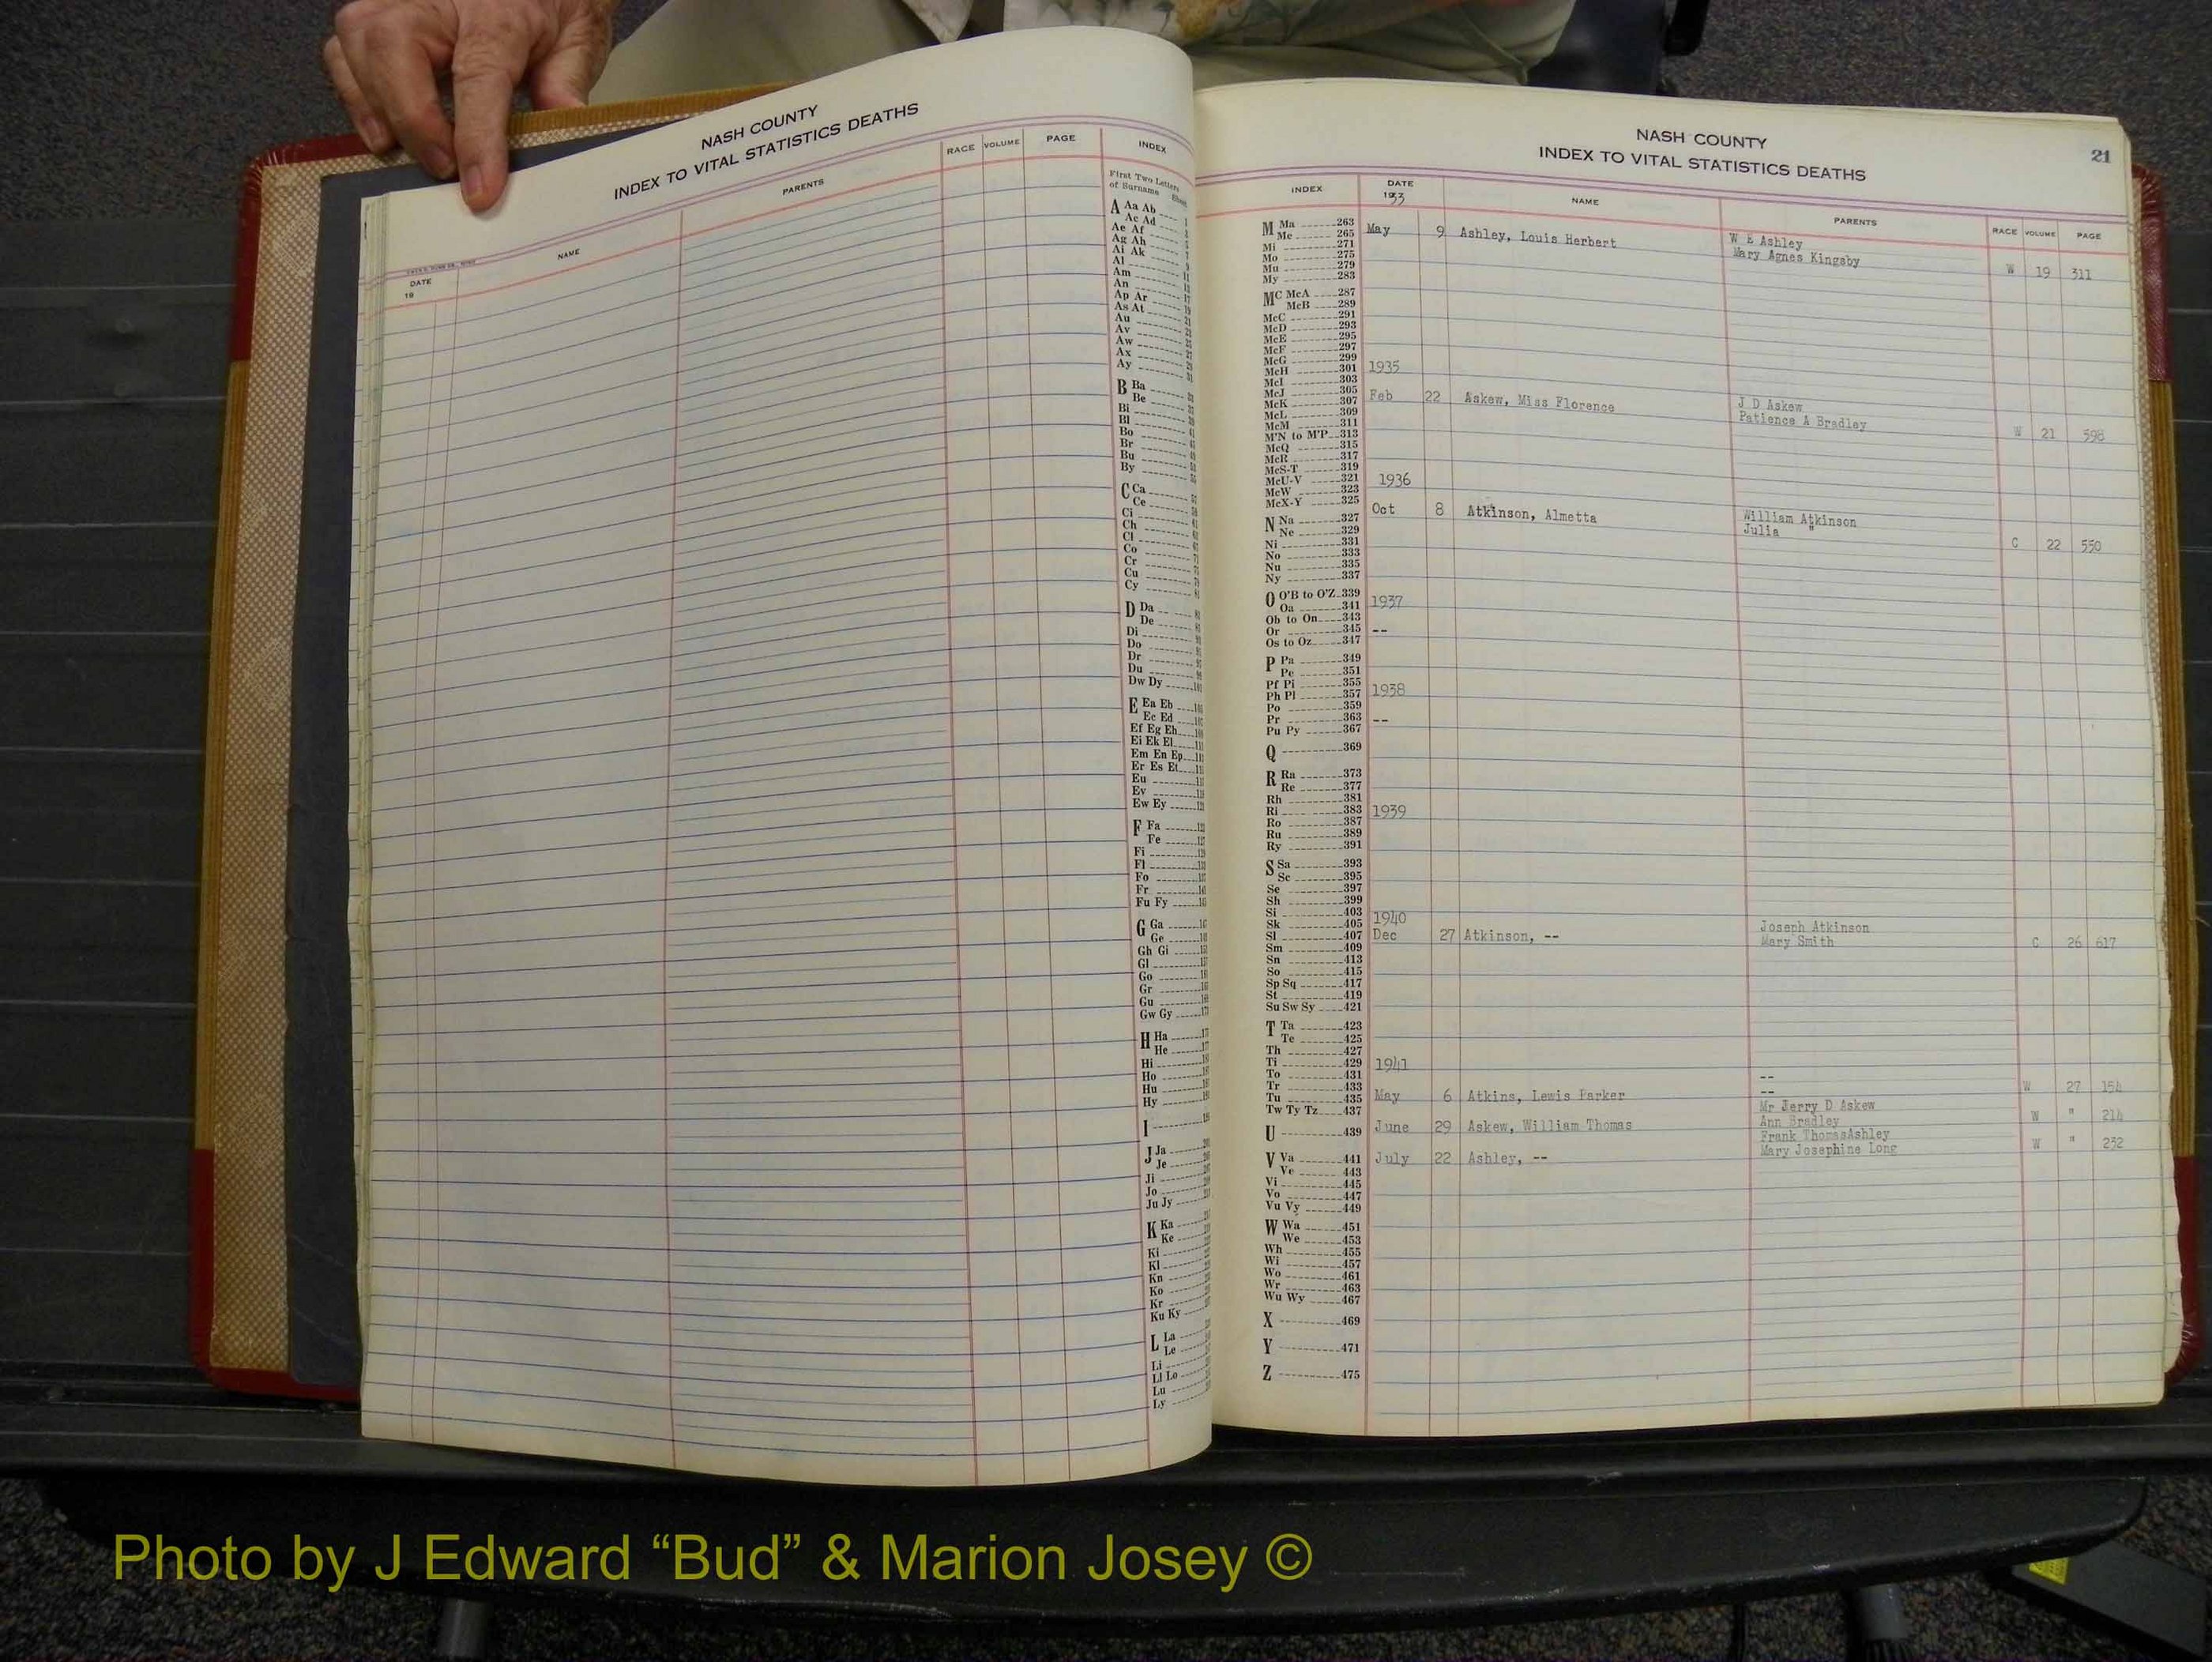 NASH COUNTY
INDEX TO VITAL STATISTICS DEATHS
DATE
19
NAME
PARENTS
RACE
VOLUME
PAGE
INDEX
First Two Letters
of Surname
A Aa Ab
Ac Ad
Ae Af
Ag Ah
Ai Ak
Al
Am
An
Ap Ar
As At
Au
Av
Aw
Ax
Ay
B Ba
Be
Bi
Bl
Bo
Br
Bu
By
C Ca
Ce
Ci
Ch
Cl
Co
Cr
Cu
Cy
D Da
De
Di
Do
Dr
Du
Dw Dy
E Ea Eb
Ec Ed
Ef Eg Eh
Ei Ek El
Em En Ep
Er Es Et
Eu
Ev
Ew Ey
F Fa
Fe
Fi
Fl
Fo
Fr
Fu Fy
G Ga
Ge
Gh Gi
Gl
Go
Gr
Gu
Gw Gy
H Ha
He
Hi
Ho
Hu
Hy
I
J Ja
Je
Ji
Jo
Ju Jy
K Ka
Ke
Ki
Kl
Kn
Ko
Kr
Ku Ky
L La
Le
Li
Ll Lo
Lu
Ly
NASH COUNTY
INDEX TO VITAL STATISTICS DEATHS
21
INDEX
DATE
1933
NAME
PARENTS
RACE
VOLUME
PAGE
M Ma 263
Me 265
Mi 271
Mo 275
Mu 279
My 283
MC McA 287
McB 289
McC 291
McD 293
McE 295
McF 297
McG 299
McH 301
McI 303
McJ 305
McK 307
McL 309
McM 311
M'N to M'P 313
McQ 315
McR 317
McS-T 319
McU-V 321
McW 323
McX-Y 325
N Na 327
Ne 329
Ni 331
No 333
Nu 335
Ny 337
O O'B to O'Z 339
Oa 341
Ob to On 343
Or 345
Os to Oz 347
P Pa 349
Pe 351
Pf Pi 355
Ph Pl 357
Po 359
Pr 363
Pu Py 367
Q 369
R Ra 373
Re 377
Rh 381
Ri 383
Ro 387
Ru 389
Ry 391
S Sa 393
Sc 395
Se 397
Sh 399
Si 403
Sk 405
Sl 407
Sm 409
Sn 413
So 415
Sp Sq 417
St 419
Su Sw Sy 421
T Ta 423
Te 425
Th 427
Ti 429
To 431
Tr 433
Tu 435
Tw Ty Tz 437
U 439
V Va 441
Ve 443
Vi 445
Vo 447
Vu Vy 449
W Wa 451
We 453
Wh 455
Wi 457
Wo 461
Wr 463
Wu Wy 467
X 469
Y 471
Z 475
May 9 Ashley, Louis Herbert W E Ashley
Mary Agnes Kingsby
W 19 311
1935
Feb 22 Askew, Miss Florence J D Askew
Patience A Bradley
W 21 598
1936
Oct 8 Atkinson, Almetta William Atkinson
Julia "
C 22 550
1937
--
1938
--
1939
1940
Joseph Atkinson
Dec 27 Atkinson, -- Mary Smith C 26 617
1941
--
May 6 Atkins, Lewis Parker -- W 27 154
Mr Jerry D Askew
June 29 Askew, William Thomas Ann Bradley W " 214
Frank ThomasAshley
July 22 Ashley, -- Mary Josephine Long W " 232
Photo by J Edward “Bud” & Marion Josey ©